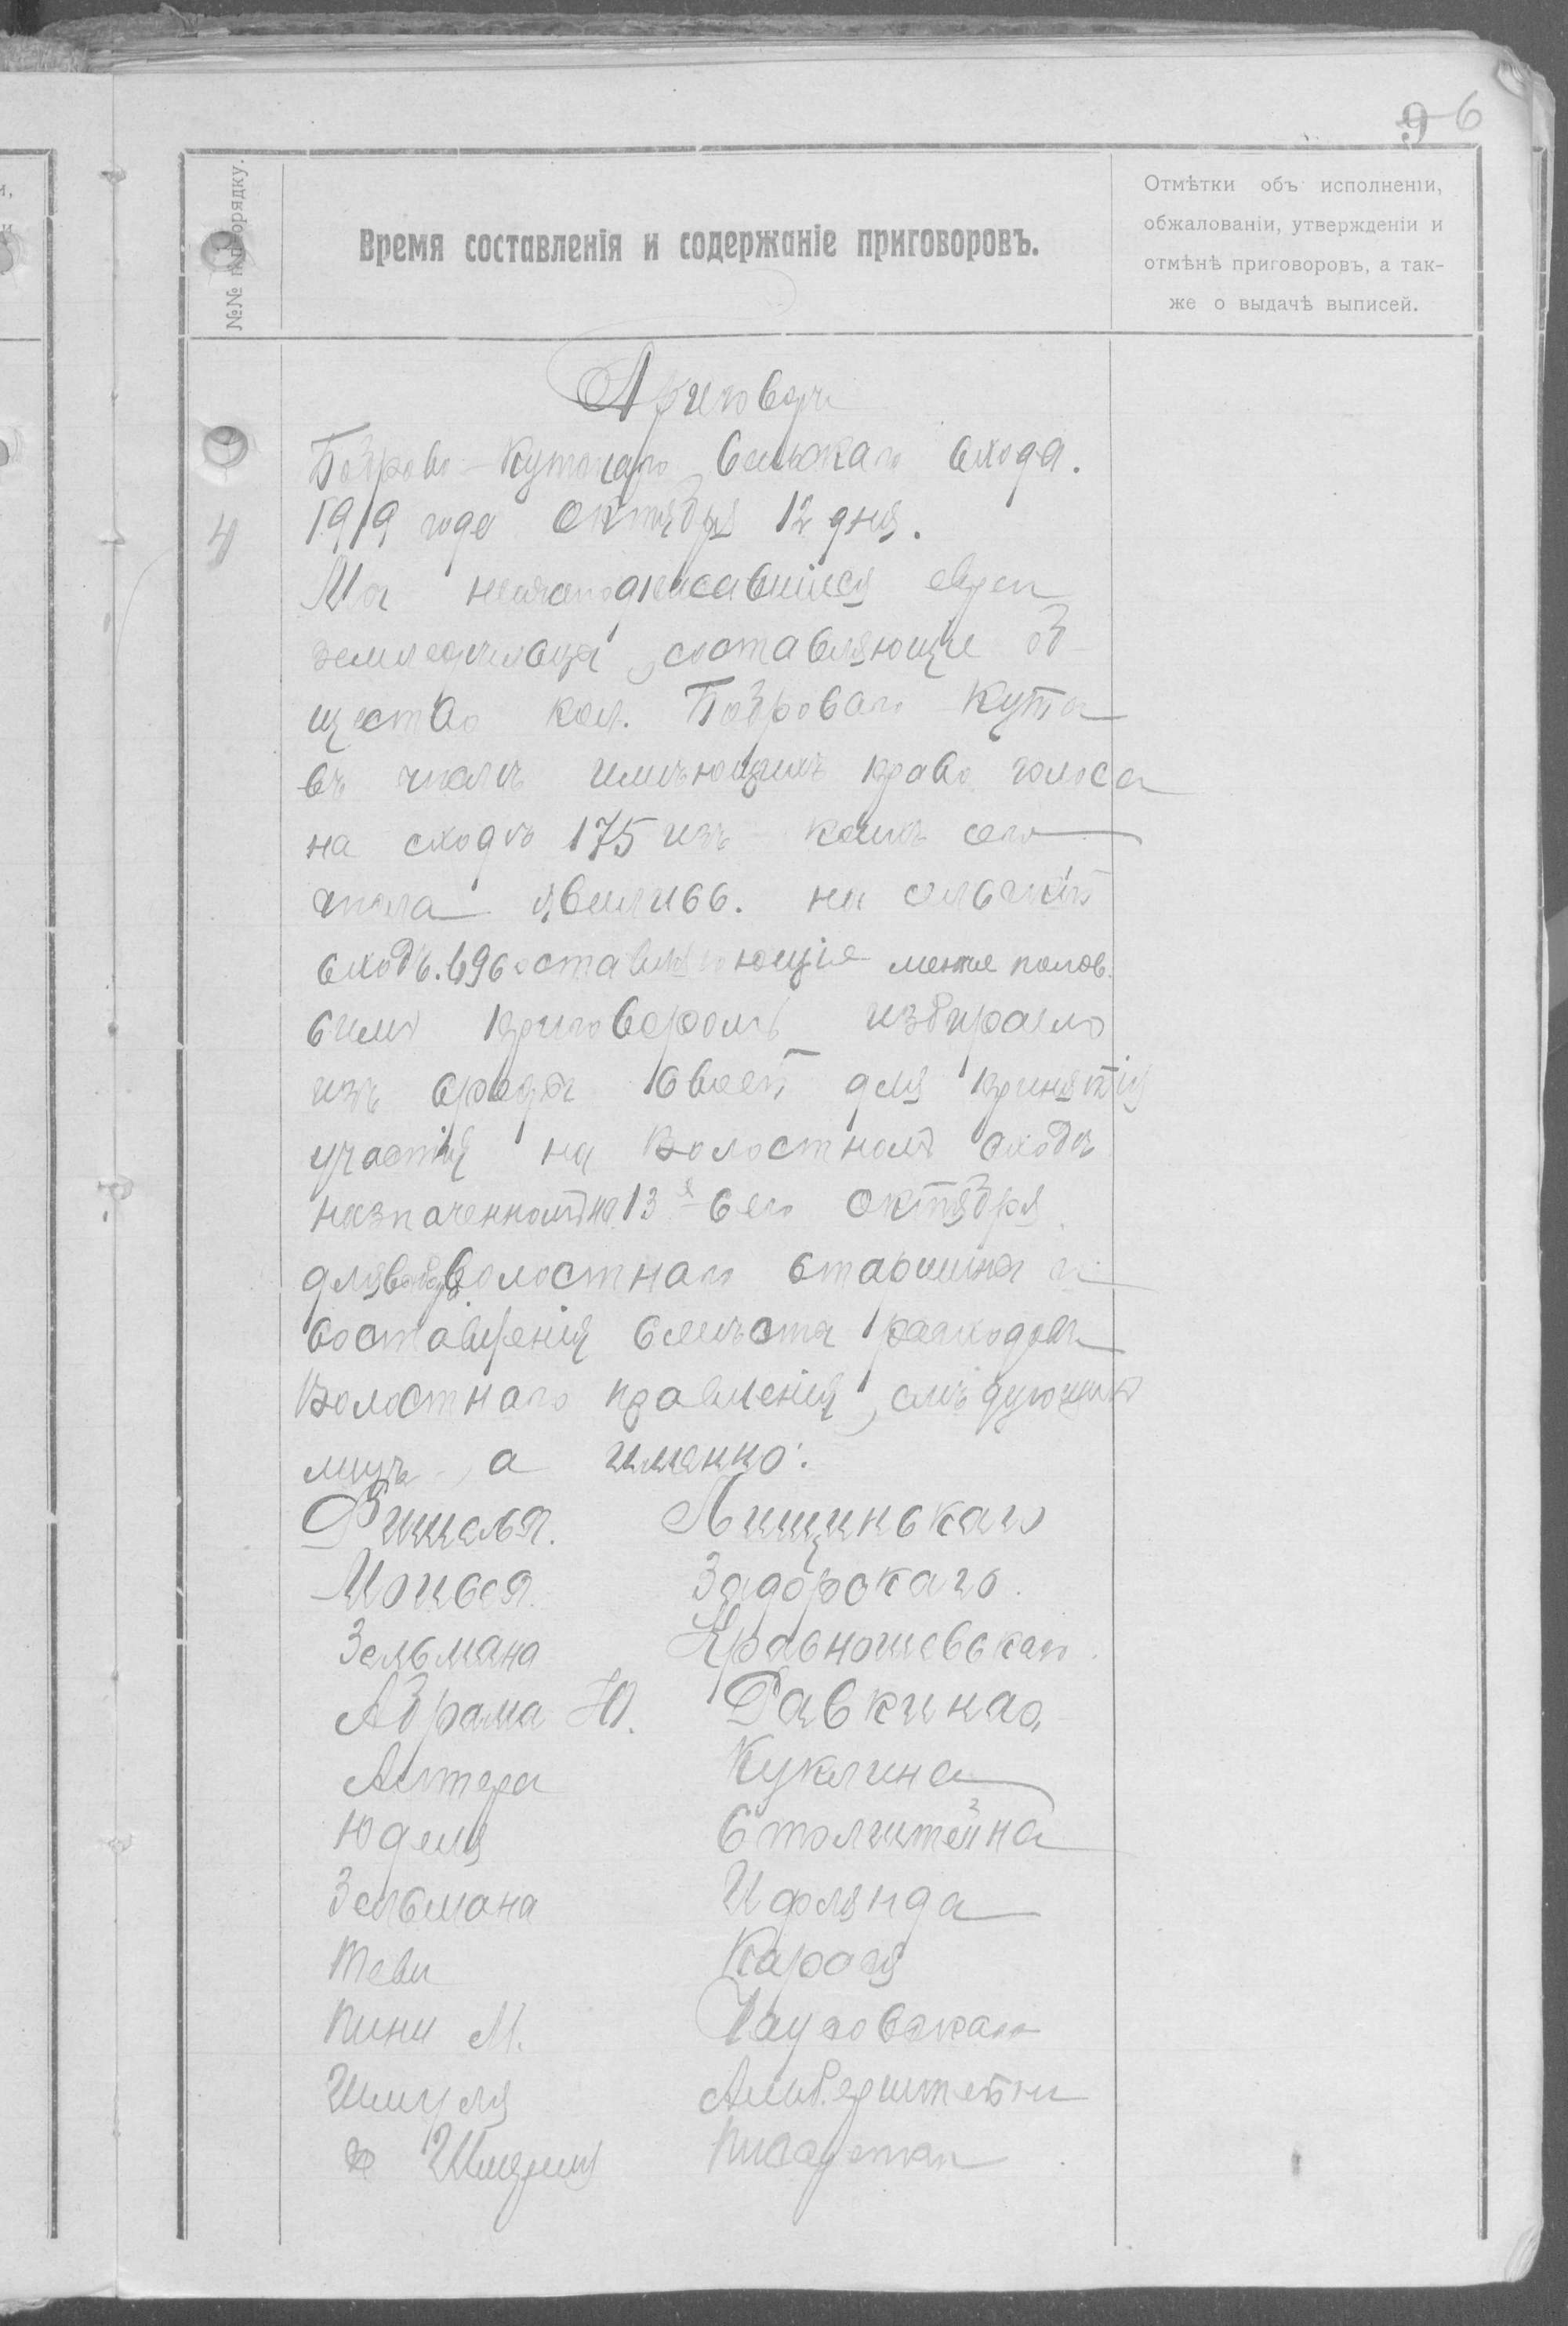 9 6
№№ по порядку.
Время составленія и содержаніе приговоровъ.
Отмѣтки объ исполненіи,
обжалованіи, утвержденіи и
отмѣнѣ приговоровъ, а так-
же о выдачѣ выписей.
Приговоръ
4
Боброво-Кутскаго Сельскаго схода.
1919 года Октября 12 дня.
Мы нижеподписавшіеся евреи
земледѣльцы, составляющіе об-
щество кол. Боброваго Кута
въ числѣ имѣющихъ право голоса
на сходѣ 175 изъ коихъ сего
числа явились. на сельскій
сходъ. 69 составляющіе менѣе полов.
симъ приговоромъ избираемъ
изъ среды своей для принятія
участія на Волостномъ сходѣ
назначенномъ на 13 сего Октября
для Волостнаго старшины и
составленія смѣты расходовъ
Волостного правленія, слѣдующихъ
лицъ, а именно:
Фишеля. Лищинскаго
Мойсея. Задорскаго.
Зельмана Красношевскаго.
Абрама Ю. Равкина.
Алтера Куклина
Юделя Столштейна
Зельмана Ифлянда
Теви Карася
Пини М. Чаусовскаго
Шмуля Альберштейна